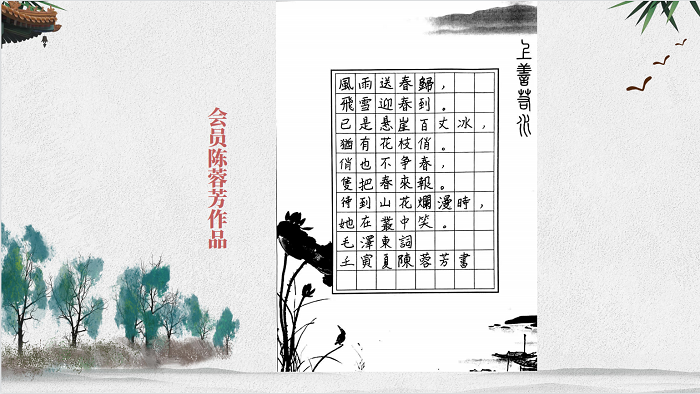 会员陈蓉芳作品
上善若水
風雨送春歸，
飛雪迎春到。
已是悬崖百丈冰，
猶有花枝俏。
俏也不争春，
隻把春來報。
待到山花爛漫時，
她在叢中笑。
毛澤東詞
壬寅夏陳蓉芳書